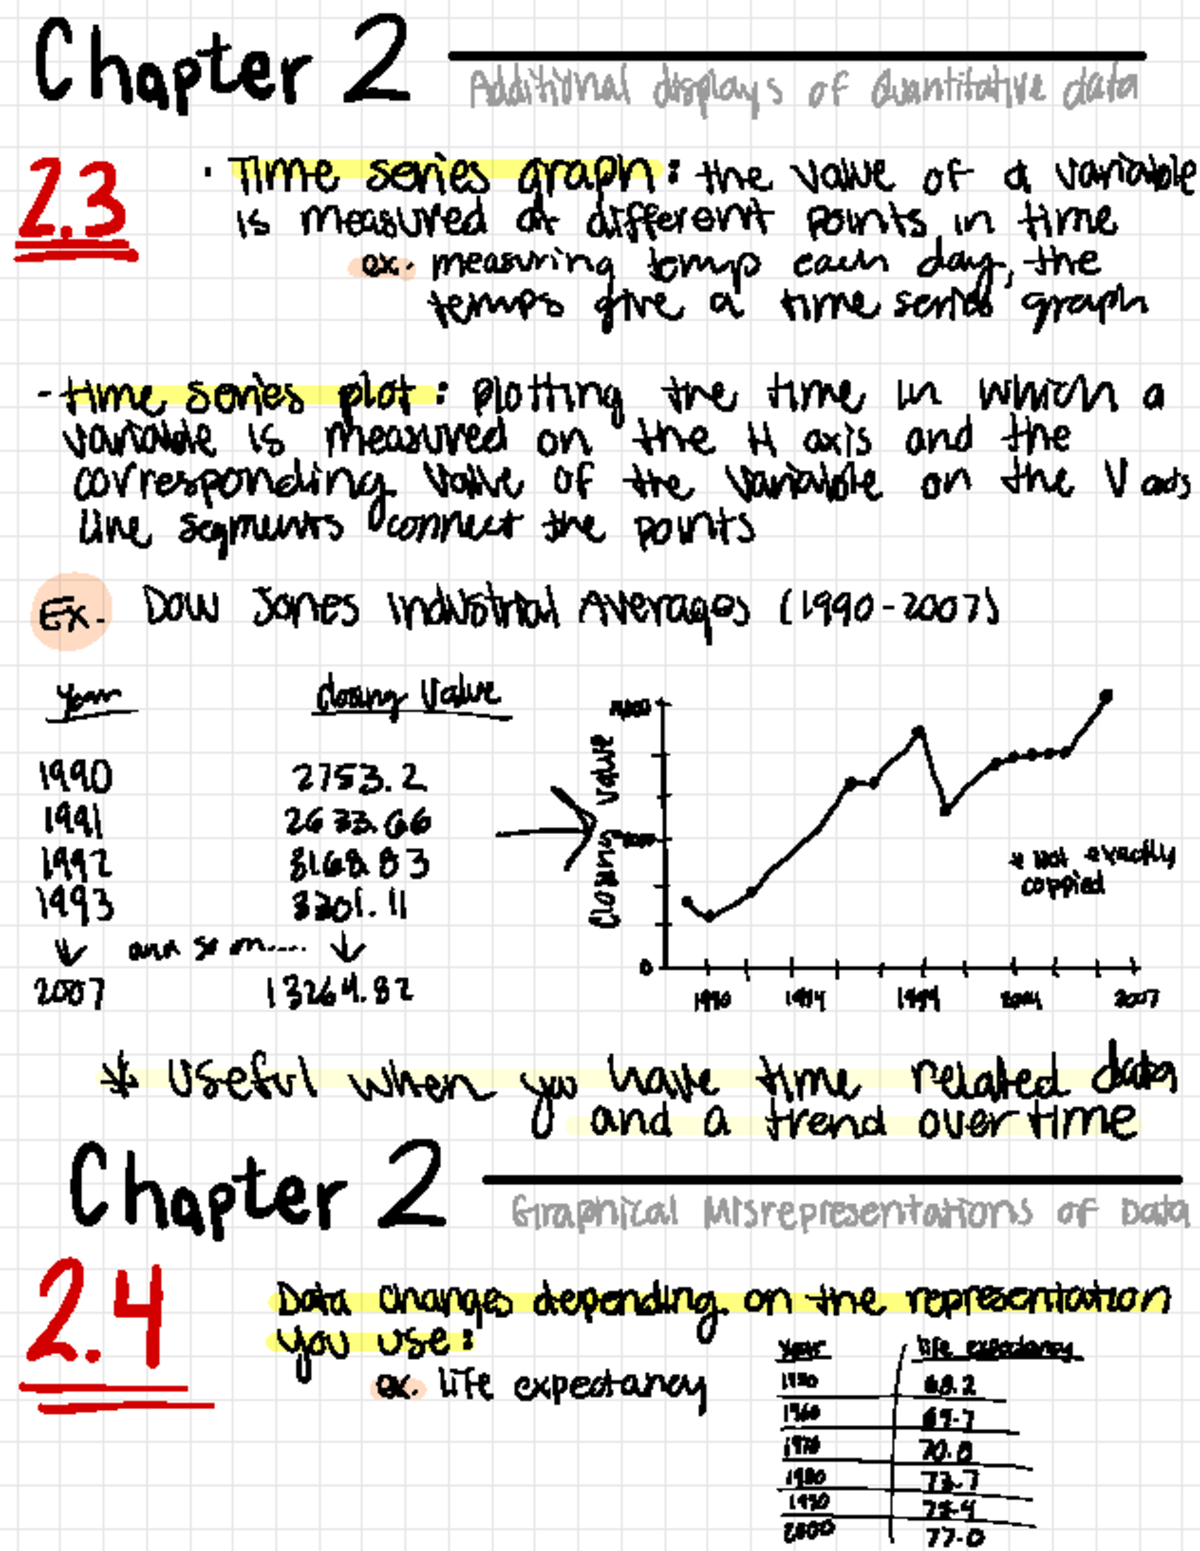 Chapter 2
Additional displays of Quantitative data
2.3
· Time series graph: the value of a variable
is measured at different points in time
ex. measuring temp each day, the
temps give a time series graph
- time series plot: plotting the time in which a
variable is measured on the H axis and the
corresponding value of the variable on the V axis
line segments connect the points
Ex. Dow Jones Industrial Averages (1990-2007)
Year Closing Value
1990 2753.2
1991
1992
1993
↓ and so on..... ↓
2007 13264.82
Closing Value
0
1990 1994 1999 2004 2007
* Not exactly
coppied
* Useful when you have time related data
and a trend over time
Chapter 2
Graphical Misrepresentations of Data
2.4
Data changes depending on the representation
you use:
ex. life expectancy
Year life expectancy
1950 68.2
1960 69.7
1970 70.8
1980 73.7
1990 75.4
2000 77.0